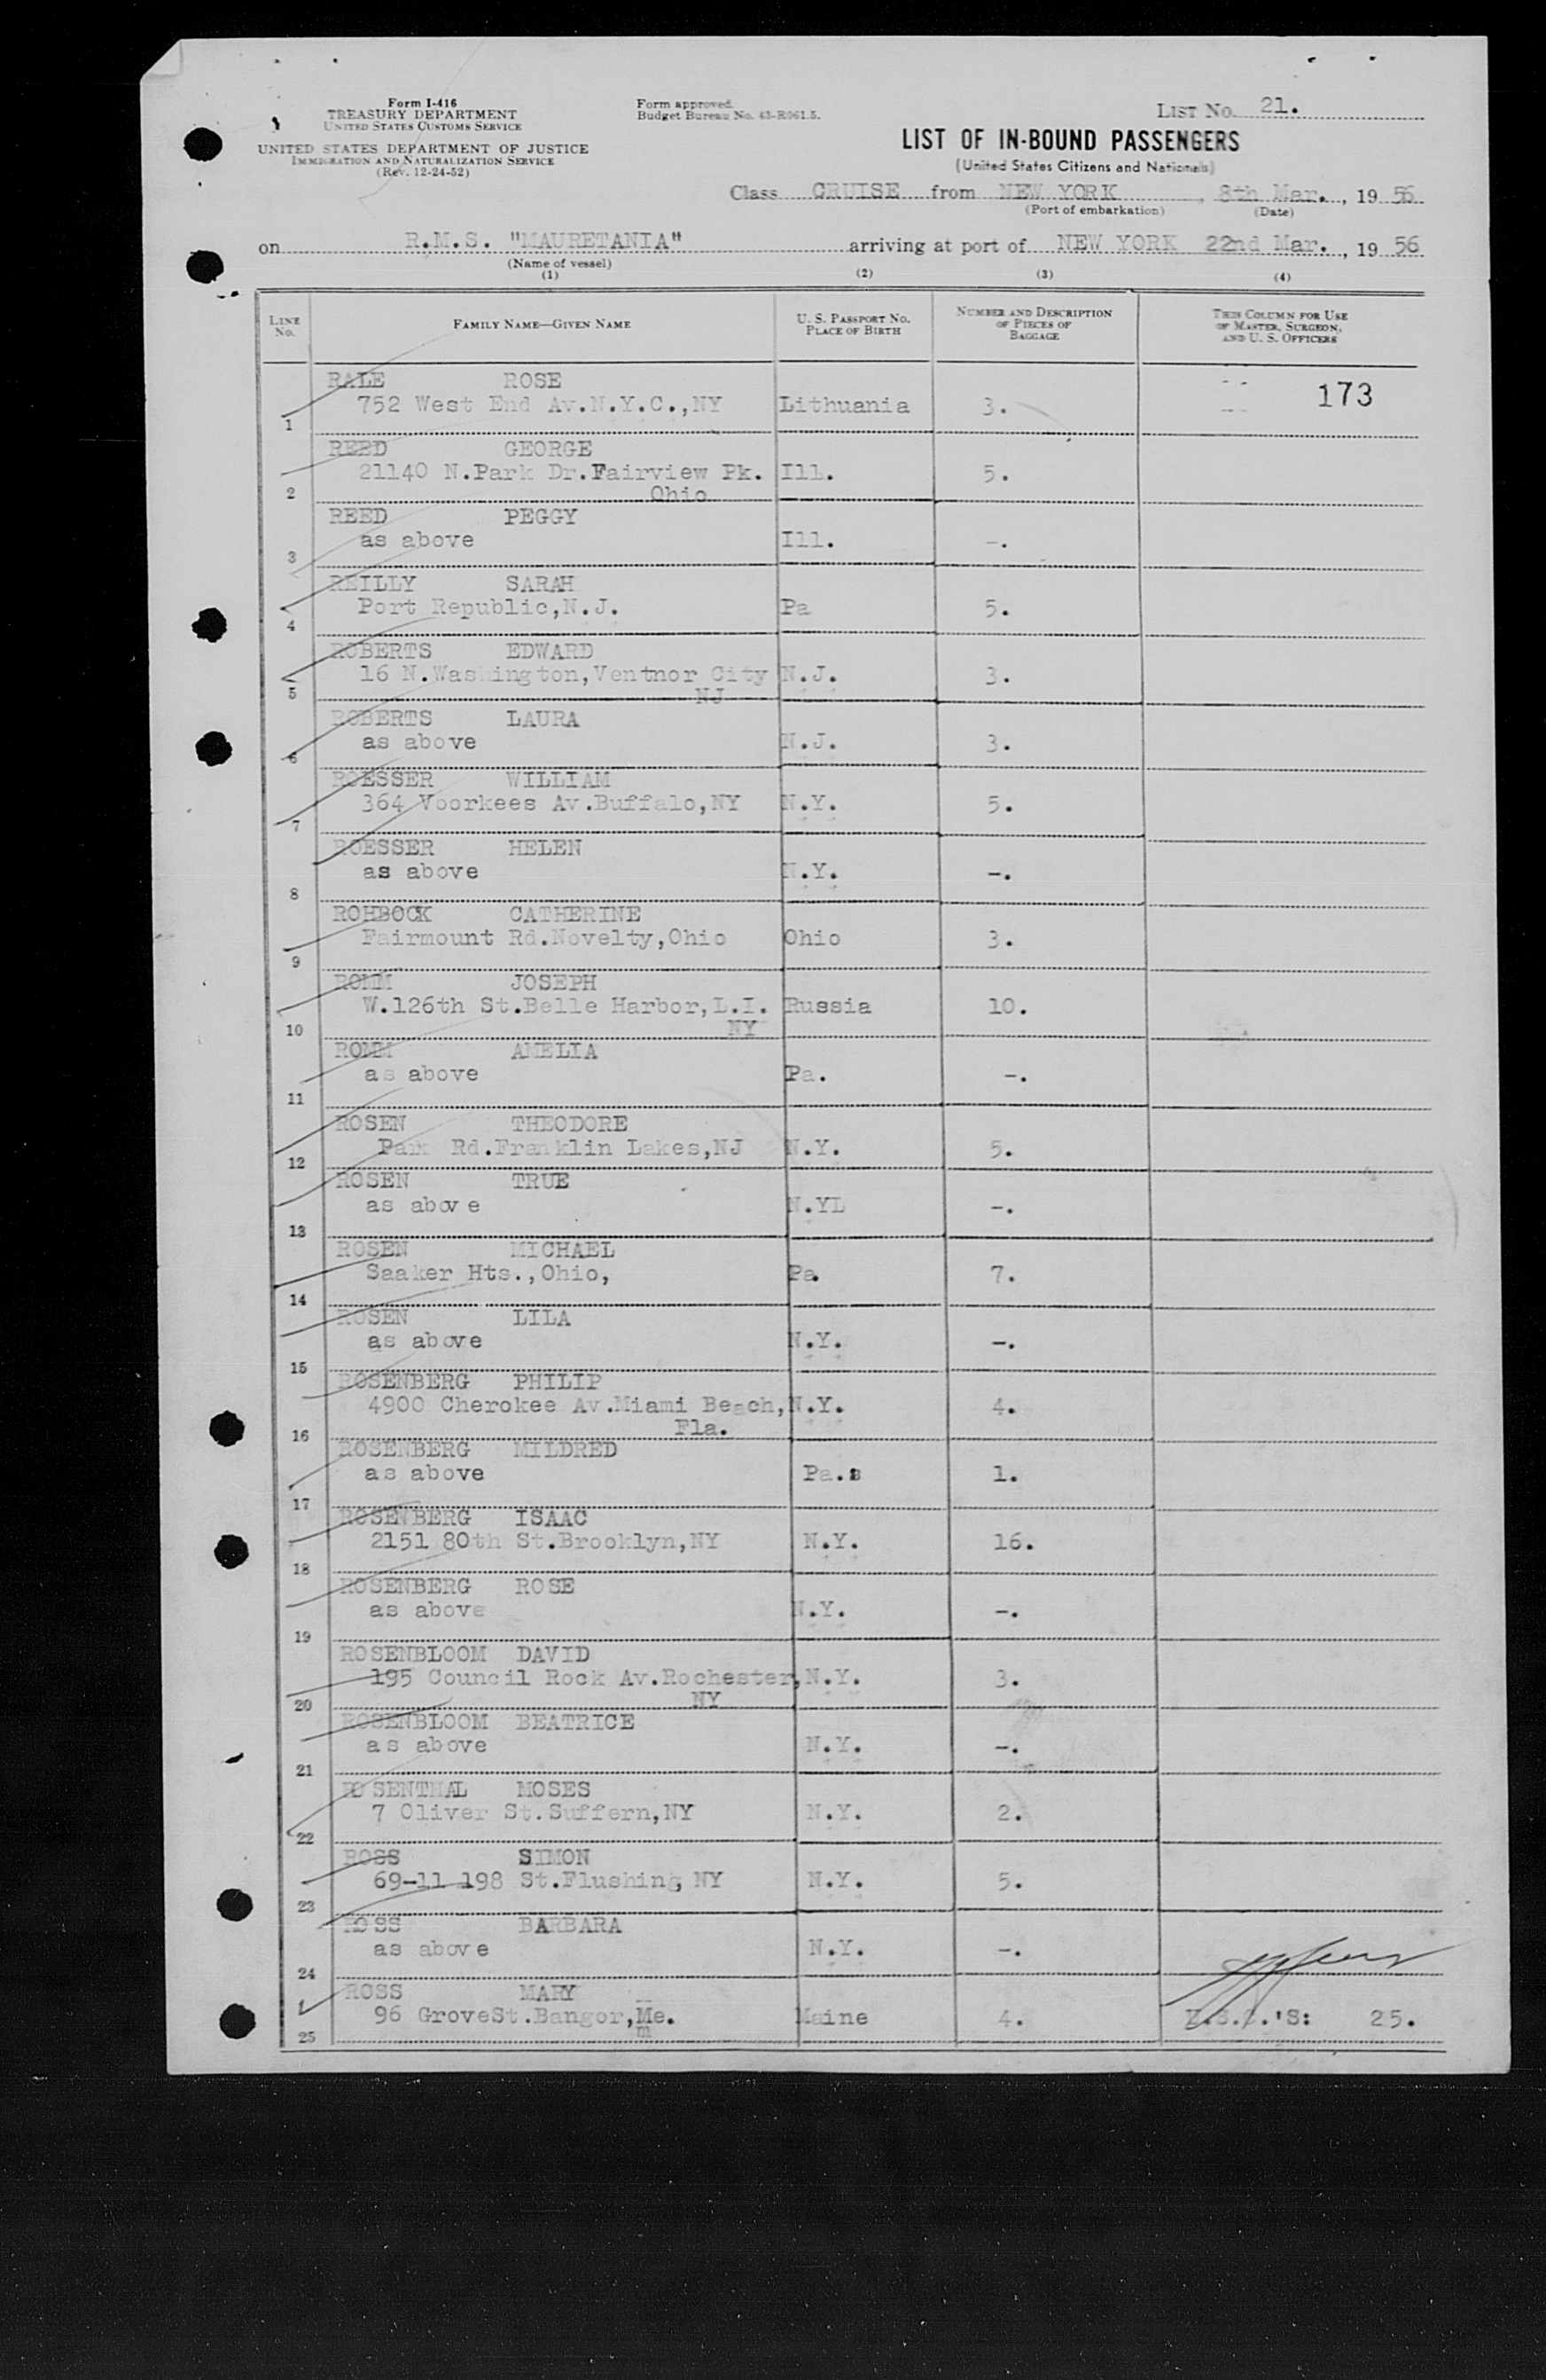 Form I-416
TREASURY DEPARTMENT
UNITED STATES CUSTOMS SERVICE
UNITED STATES DEPARTMENT OF JUSTICE
IMMIGRATION AND NATURALIZATION SERVICE
(Rev. 12-24-52)
Form approved.
Budget Bureau No. 43-R061.5.
LIST No. 21.
LIST OF IN-BOUND PASSENGERS
(United States Citizens and Nationals)
Class CRUISE from NEW YORK, 8th Mar., 1956
(Port of embarkation) (Date)
on R.M.S. "MAURETANIA" arriving at port of NEW YORK 22nd Mar., 1956
(Name of vessel)
(1) (2) (3) (4)
LINE No. FAMILY NAME—GIVEN NAME U. S. PASSPORT No. PLACE OF BIRTH NUMBER AND DESCRIPTION OF PIECES OF BAGGAGE THIS COLUMN FOR USE OF MASTER, SURGEON, AND U. S. OFFICERS
RALE ROSE 173
752 West End Av.N.Y.C.,NY Lithuania 3.
1
REED GEORGE
21140 N.Park Dr.Fairview Pk. Ill. 5.
2 Ohio
REED PEGGY
as above Ill. -.
3
REILLY SARAH
Port Republic,N.J. Pa 5.
4
ROBERTS EDWARD
16 N.Washington,Ventnor City N.J. 3.
5 NJ
ROBERTS LAURA
as above N.J. 3.
6
ROESSER WILLIAM
364 Voorkees Av.Buffalo,NY N.Y. 5.
7
ROESSER HELEN
as above N.Y. -.
8
ROHBOCK CATHERINE
Fairmount Rd.Novelty,Ohio Ohio 3.
9
ROMM JOSEPH
W.126th St.Belle Harbor,L.I. Russia 10.
10 NY
ROMM AMELIA
as above Pa. -.
11
ROSEN THEODORE
Rd.Franklin Lakes,NJ N.Y. 5.
12
ROSEN TRUE
as above N.YL -.
13
ROSEN MICHAEL
Saaker Hts.,Ohio, Pa. 7.
14
ROSEN LILA
as above N.Y. -.
15
ROSENBERG PHILIP
4900 Cherokee Av.Miami Beach, N.Y. 4.
16 Fla.
ROSENBERG MILDRED
as above Pa. 1.
17
ROSENBERG ISAAC
2151 80th St.Brooklyn,NY N.Y. 16.
18
ROSENBERG ROSE
as above N.Y. -.
19
ROSENBLOOM DAVID
195 Council Rock Av.Rochester, N.Y. 3.
20 NY
ROSENBLOOM BEATRICE
as above N.Y. -.
21
ROSENTHAL MOSES
7 Oliver St.Suffern,NY N.Y. 2.
22
ROSS SIMON
69-11 198 St.Flushing NY N.Y. 5.
23
ROSS BARBARA
as above N.Y. -.
24
ROSS MARY
96 GroveSt.Bangor,Me. Maine 4. 25.
m
25